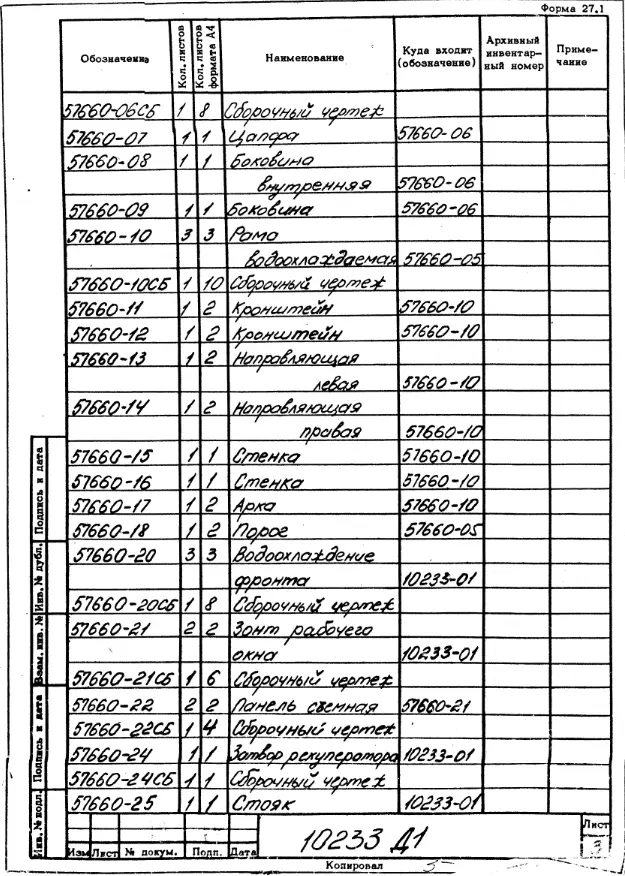 Форма 27.1
Обозначение Кол. листов Кол. листов формата А4 Наименование Куда входит (обозначение) Архивный инвентарный номер Примечание
57660-06СБ 1 8 Сборочный чертеж
57660-07 1 1 Цапфа 57660-06
57660-08 1 1 Боковина
внутренняя 57660-06
57660-09 1 1 Боковина 57660-06
57660-10 3 3 Рама
водоохлаждаемая 57660-05
57660-10СБ 1 10 Сборочный чертеж
57660-11 1 2 Кронштейн 57660-10
57660-12 1 2 Кронштейн 57660-10
57660-13 1 2 Направляющая
левая 57660-10
57660-14 1 2 Направляющая
правая 57660-10
57660-15 1 1 Стенка 57660-10
57660-16 1 1 Стенка 57660-10
57660-17 1 2 Арка 57660-10
57660-18 1 2 Порог 57660-05
57660-20 3 3 Водоохлаждение
фронта 10233-01
57660-20СБ 1 8 Сборочный чертеж
57660-21 2 2 Зонт рабочего
окна 10233-01
57660-21СБ 1 6 Сборочный чертеж
57660-22 2 2 Панель съемная 57660-21
57660-22СБ 1 4 Сборочный чертеж
57660-24 1 1 Затвор рекуператора 10233-01
57660-24СБ 1 1 Сборочный чертеж
57660-25 1 1 Стояк 10233-01
Инв. № подл. Подпись и дата Взам. инв. № Инв. № дубл. Подпись и дата
Изм Лист № докум. Подп. Дата
10233 Д1
Лист
3
Копировал